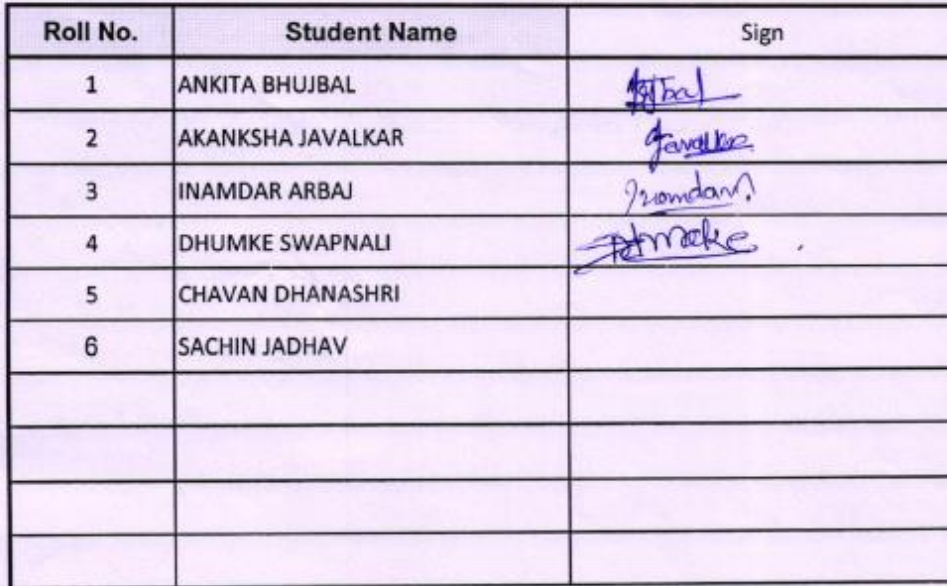 Roll No. Student Name Sign
1 ANKITA BHUJBAL
2 AKANKSHA JAVALKAR
3 INAMDAR ARBAJ Inamdar
4 DHUMKE SWAPNALI
5 CHAVAN DHANASHRI
6 SACHIN JADHAV